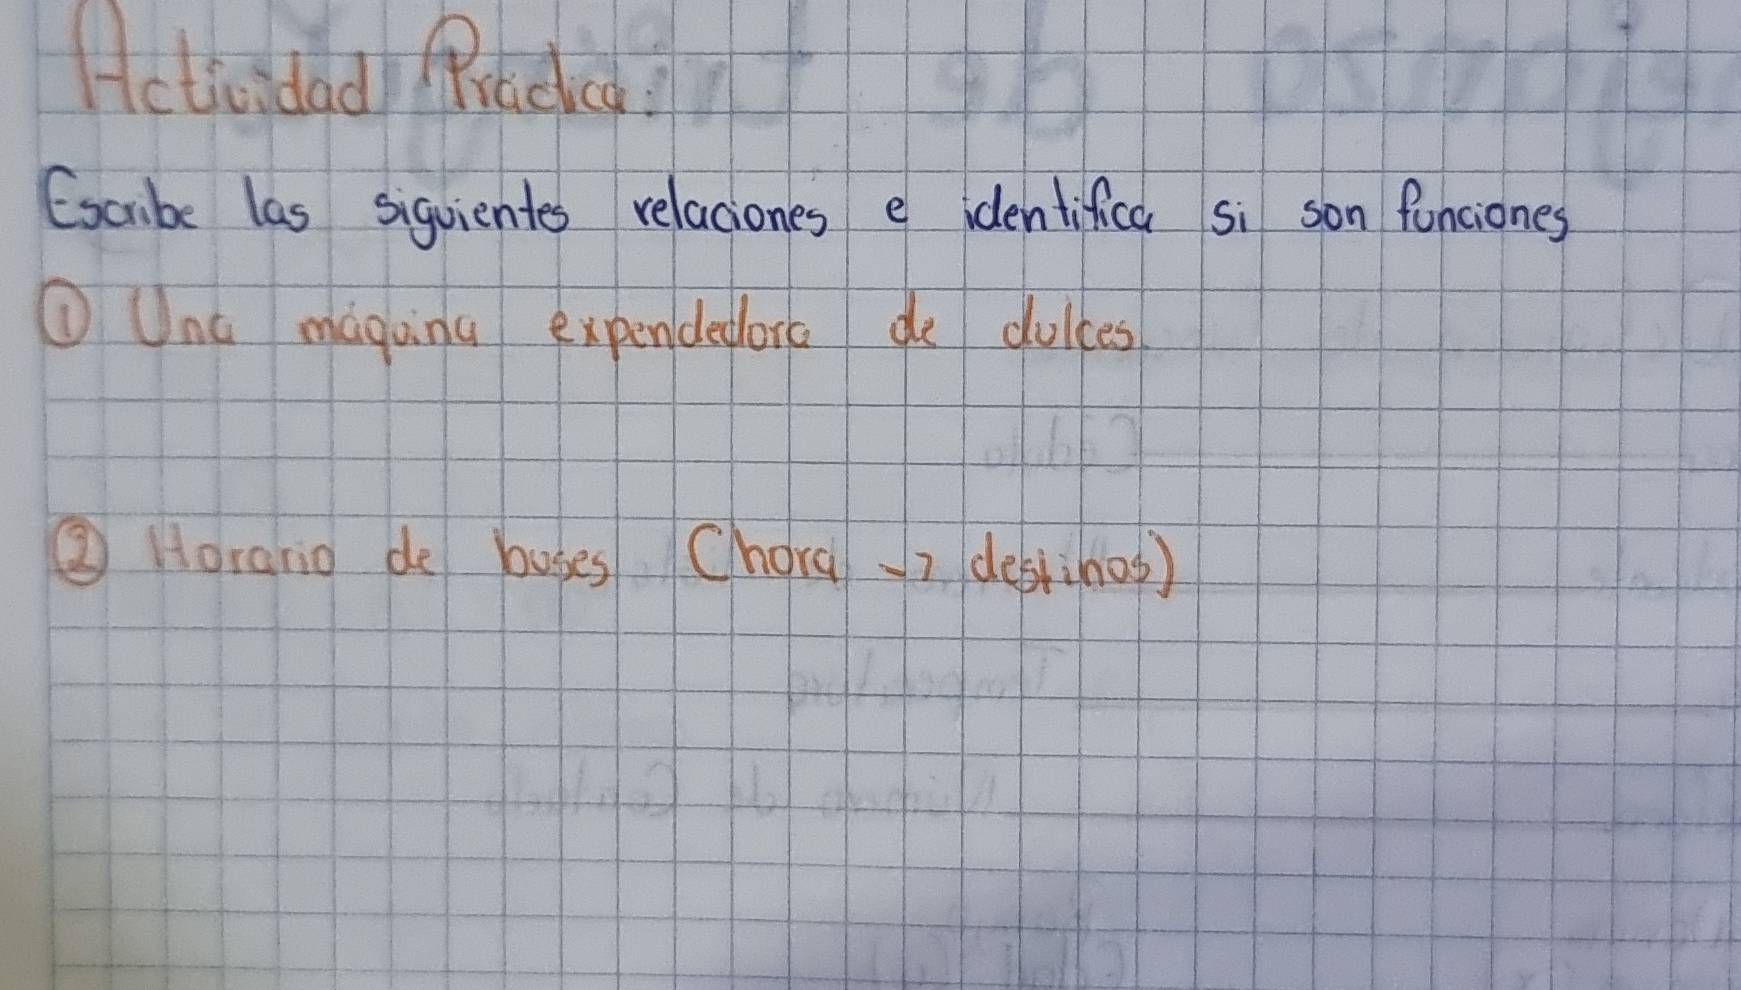 Actividad Práctica:
Escribe las siguientes relaciones e identifica si son funciones
① Una máquina expendedora de dulces
② Horario de buses (hora → destinos)